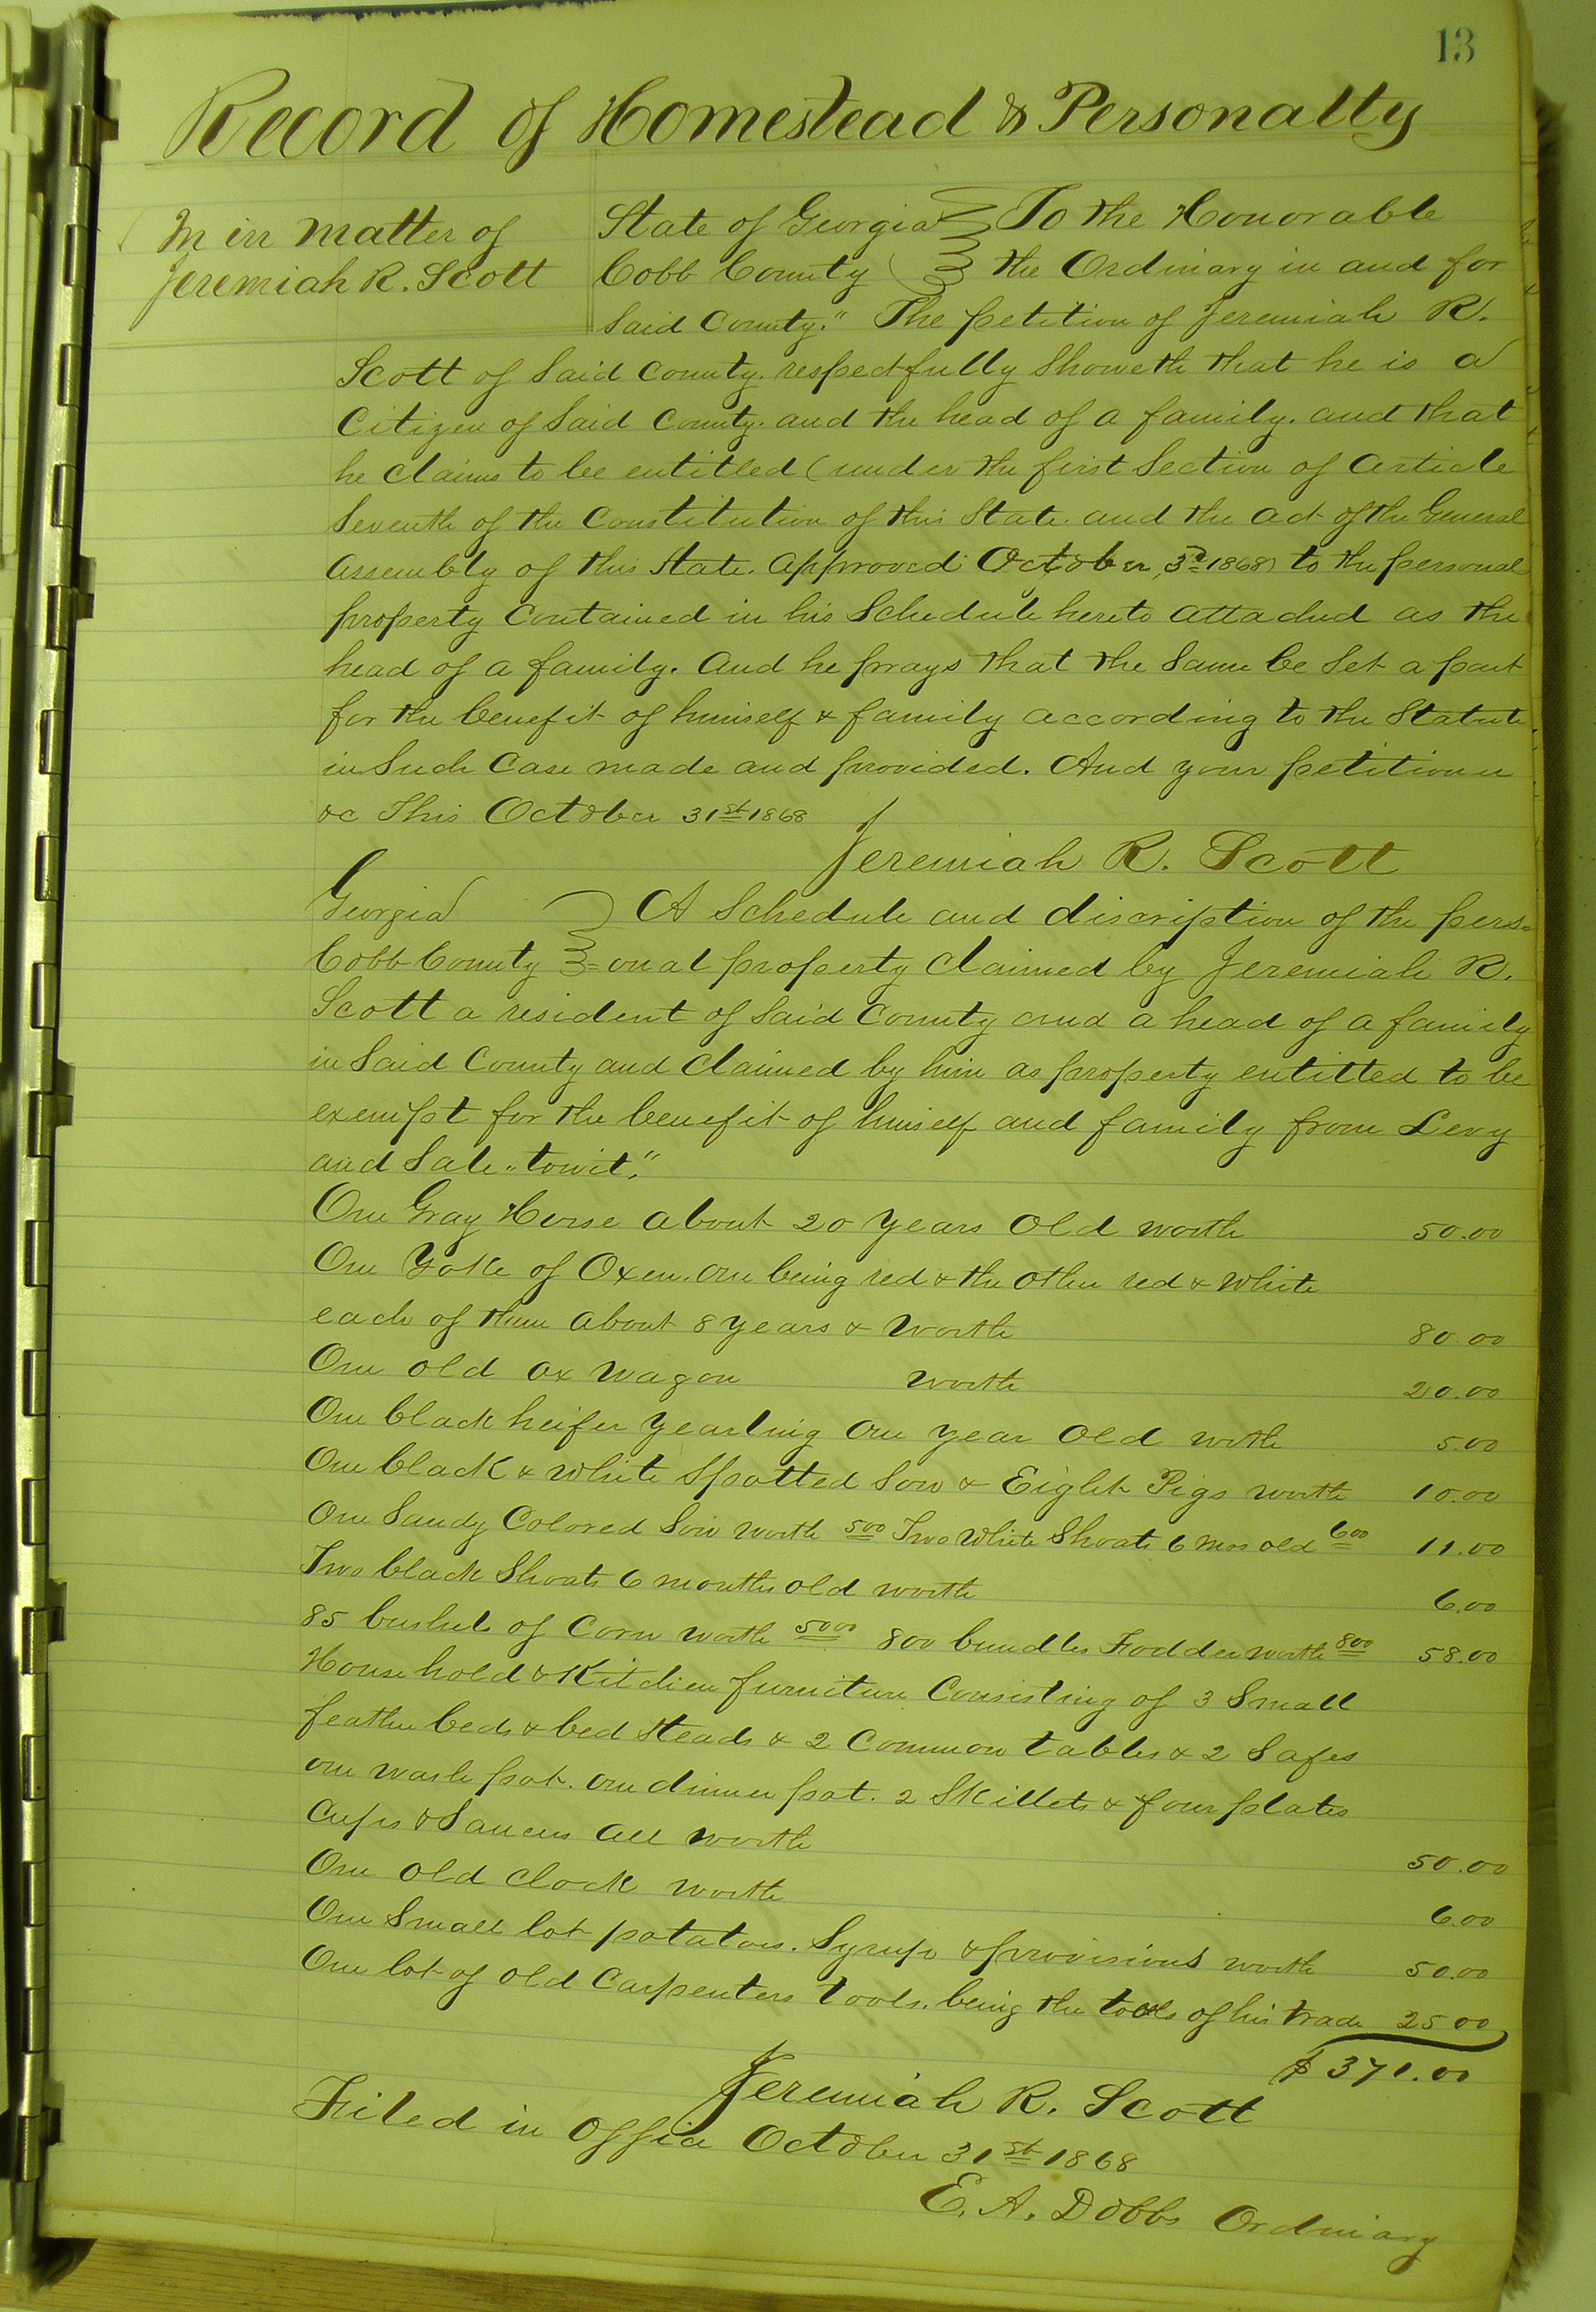 13
Record of Homestead & Personalty
In in matter of
Jeremiah R. Scott
State of Georgia } To the Honorable
Cobb County } the Ordinary in and for
Said County." The petition of Jeremiah R.
Scott of Said County. respectfully Showeth that he is a
Citizen of Said County. and the head of a family. and that
he Claims to be entitled (under the first Section of Article
Seventh of the Constitution of this State. and the act of the General
Assembly of this State. Approved October, 3rd 1868) to the personal
property Contained in his Schedule hereto attached as the
head of a family. And he prays that the Same be Set a part
for the benefit of himself & family according to the Statute
in Such Case made and provided. And your petitioner
&c This October 31st 1868
Jeremiah R. Scott
Georgia } A Schedule and discription of the pers=
Cobb County } =onal property Claimed by Jeremiah R.
Scott a resident of Said County and a head of a family
in Said County and Claimed by him as property entitled to be
exempt for the benefit of himself and family from Levy
and Sale "towit."
One Gray Horse about 20 years old worth 50.00
One Yoke of Oxen. one being red & the other red & white
each of them about 8 years & worth 80.00
One old ox wagon worth 20.00
One black heifer yearling one year old worth 5.00
One black & white Spotted Sow & Eight Pigs worth 10.00
One Sandy Colored Sow worth 5.00 Two White Shoats 6 mos old 6.00 11.00
Two black Shoats 6 months old worth 6.00
85 bushels of Corn worth 50.00 800 bundles Fodder worth 8.00 58.00
Household & Kitchen furniture Consisting of 3 Small
feather beds & bed Steads & 2 Common tables & 2 Safes
one wash pot. one dinner pot. 2 Skillets & four plates
Cups & Saucers all worth 50.00
One old clock worth 6.00
One Small lot potatoes. Syrup & provisions worth 50.00
One lot of old Carpenters tools. being the tools of his trade 25.00
$371.00
Jeremiah R. Scott
Filed in Office October 31st 1868
E. A. Dobbs Ordinary